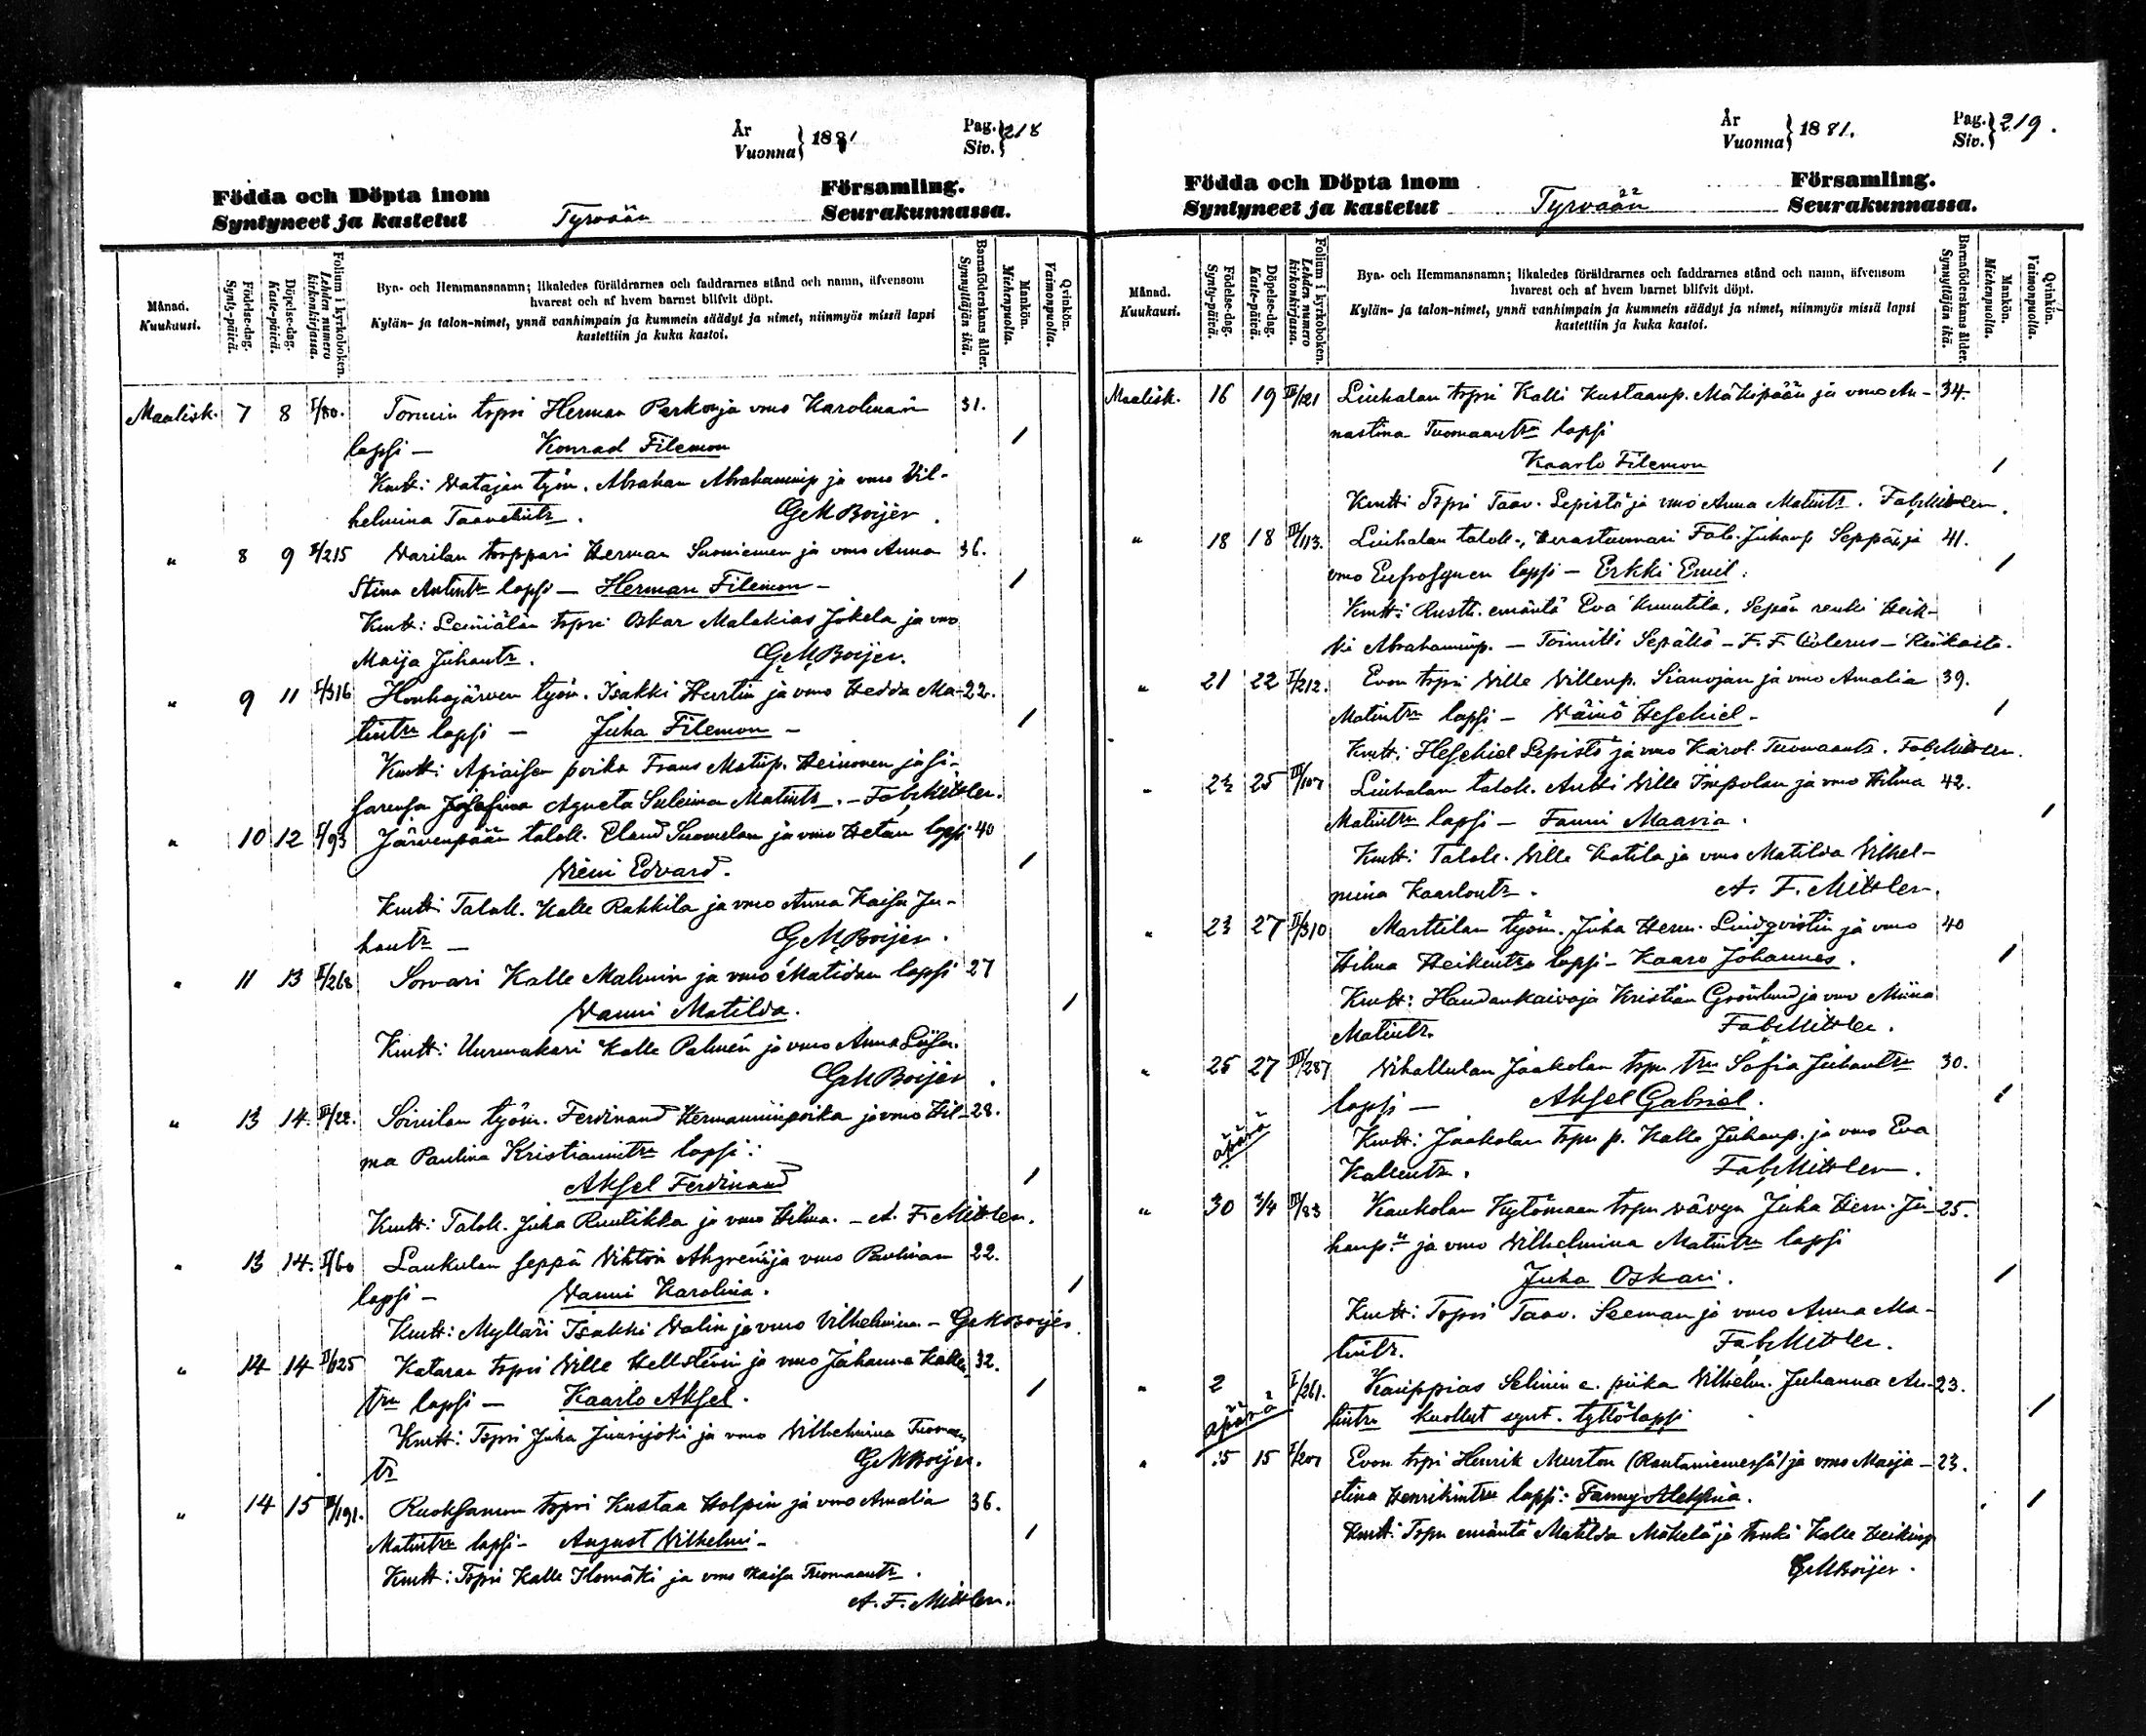 År
Vuonna } 1881
Pag.
Siv. } 218
Födda och Döpta inom Församling.
Syntyneet ja kastetut Tyrvään Seurakunnassa.
Månad.
Kuukausi.
Födelse-dag.
Synty-päivä.
Döpelse-dag.
Kaste-päivä.
Folium i kyrkoboken.
Lehden numero
kirkonkirjassa.
Bya- och Hemmansnamn; likaledes föräldrarnes och faddrarnes stånd och namn, äfvensom
hvarest och af hvem barnet blifvit döpt.
Kylän- ja talon-nimet, ynnä vanhimpain ja kummein säädyt ja nimet, niinmyös missä lapsi
kastettiin ja kuka kastoi.
Barnaföderskans ålder.
Synnyttäjän ikä.
Mankön.
Miehenpuolta.
Qvinkön.
Vaimonpuolta.
Maalisk. 7 8 I/80. Tormin torpri Herman Perkonja vmo Karolinain 31.
lapsi — Konrad Filemon /
Kmtt: Watajan työm. Abraham Abrahaminp ja vmo Vil-
helmina Taavetintr. GMBoijer.
" 8 9 I/215 Warilan torppari Herman Suoniemen ja vmo Anna 36.
Stina Antintr lapsi — Herman Filemon — /
Kmtt: Leiniälän torpri Oskar Malakias Jokela ja vmo
Maija Juhantr. GMBoijer.
" 9 11 I/316 Houhajärven työm. Isakki Hurtin ja vmo Hedda Ma- 22.
tintrn lapsi — Juha Filemon — /
Kmtt: poika Frans Matinp. Heinonen ja si-
sarensa Agneta Suleima Matintr. — FabMittler.
" 10 12 I/93 Järvenpään talok. Eland Suomelan ja vmo Hetan lapsi 40
Wieni Edvard. /
Kmtt: Talok. Kalle Rakkila ja vmo Anna Kaisa Ju-
hantr — GMBoijer.
" 11 13 I/268 Sorvari Kalle Malmin ja vmo Matildan lapsi 27
Wanni Matilda. /
Kmtt: Uurmakari Kalle Palmén ja vmo Anna Liisa.
GMBoijer.
" 13 14. III/28. Soinilan työm. Ferdinand Hermanninpoika ja vmo Hil- 28.
ma Paulina Kristianintrn lapsi:
Aksel Ferdinand /
Kmtt: Talok. Juha Ruutikka ja vmo Hilma. — A. F. Mittler.
" 13 14. I/60 Laukulan seppä Viktor ja vmo Paulinan 22.
lapsi — Wanni Karolina. /
Kmtt: Mylläri Isakki Walin ja vmo Vilhelmina — GMBoijer.
" 14 14 Kataran torpri Wille Hellstenin ja vmo Johanna Kallen 32.
trn lapsi — Kaarlo Aksel. /
Kmtt: Torpri Juha Junnijoki ja vmo Vilhelmina Tuomaan
tr GMBoijer.
" 14 15 III/191. Ruoksamon torpri Kustaa Holpin ja vmo Amalia 36.
Matintrn lapsi — August Vilhelmi — /
Kmtt: Torpri Kalle Ilomäki ja vmo Kaisa Tuomaantr.
A. F. Mittler.
År
Vuonna } 1881.
Pag.
Siv. } 219.
Födda och Döpta inom Församling.
Syntyneet ja kastetut Tyrvään Seurakunnassa.
Månad.
Kuukausi.
Födelse-dag.
Synty-päivä.
Döpelse-dag.
Kaste-päivä.
Folium i kyrkoboken.
Lehden numero
kirkonkirjassa.
Bya- och Hemmansnamn; likaledes föräldrarnes och faddrarnes stånd och namn, äfvensom
hvarest och af hvem barnet blifvit döpt.
Kylän- ja talon-nimet, ynnä vanhimpain ja kummein säädyt ja nimet, niinmyös missä lapsi
kastettiin ja kuka kastoi.
Barnaföderskans ålder.
Synnyttäjän ikä.
Mankön.
Miehenpuolta.
Qvinkön.
Vaimonpuolta.
Maalisk. 16 19 III/121 Liuhalan torpri Kalli Kustaanp. Mäkipään ja vmo An- 34.
nastina Tuomaantrn lapsi
Kaarlo Filemon /
Kmtt: Torpri Taav. Lepistö ja vmo Anna Matintr. FabMittler.
" 18 18 III/113. Liuhalan talok., herastuomari Fab. Juhanp Seppäi ja 41.
vmo Eufrosynen lapsi — Erkki Emil. /
Kmtt: Rustt. emäntä Eva Kuuutila, Sepän renki Heik-
ki Abrahaminp. — Toimitti Sepällä — F. F. — Hätäkaste.
" 21 22 I/212. Evon torpri Wille Willenp. Sianojan ja vmo Amalia 39.
Matintrn lapsi — Wäinö Hesekiel — /
Kmtt: Hesekiel Lepistö ja vmo Karol. Tuomaantr. FabMittler.
" 22 25 III/107 Liuhalan talok. Antti Wille Impolan ja vmo Hilma 42.
Matintrn lapsi — Fanni Maaria. /
Kmtt: Talok. Wille Katila ja vmo Matilda Vilhel-
mina Kaarlontr. A. F. Mittler.
" 23 27 II/310 Marttilan työm. Juha Herm. Lindqvistin ja vmo 40
Hilma Heikintrn lapsi — Kaaro Johannes. /
Kmtt: Haudankaivaja Kristian Grönlund ja vmo Miina
Matintr. FabMittler.
" 25 27 III/287 Vihattulan Jaakolan torpn trn Sofia Juhantrn 30.
lapsi — Aksel Gabriel. /
äpärä Kmtt: Jaakolan torpn p. Kalle Juhanp. ja vmo Eva
Kallentr. FabMittler.
" 30 3/4 III/83 Kaukolan Kytömaan torpn vävyn Juha Herm. Ju- 25.
hanp:n ja vmo Vilhelmina Matintrn lapsi
Juha Oskari. /
Kmtt: Torpri Taav. Seeman ja vmo Anna Ma-
tintr. FabMittler.
" 2 I/261. Kauppias Selinin e. piika Vilhelm. Juhanna An- 23.
äpärä tintrn kuollut synt. tyttölapsi /
" 15 15 I/207 Evon torpri Henrik Murton (Rantaniemessä) ja vmo Maija- 23.
stina Henrikintrn lapsi: Fanny Aleksina. /
Kmtt: Torpn emäntä Matilda Mäkelä ja renki Kalle Heikinp
GMBoijer.